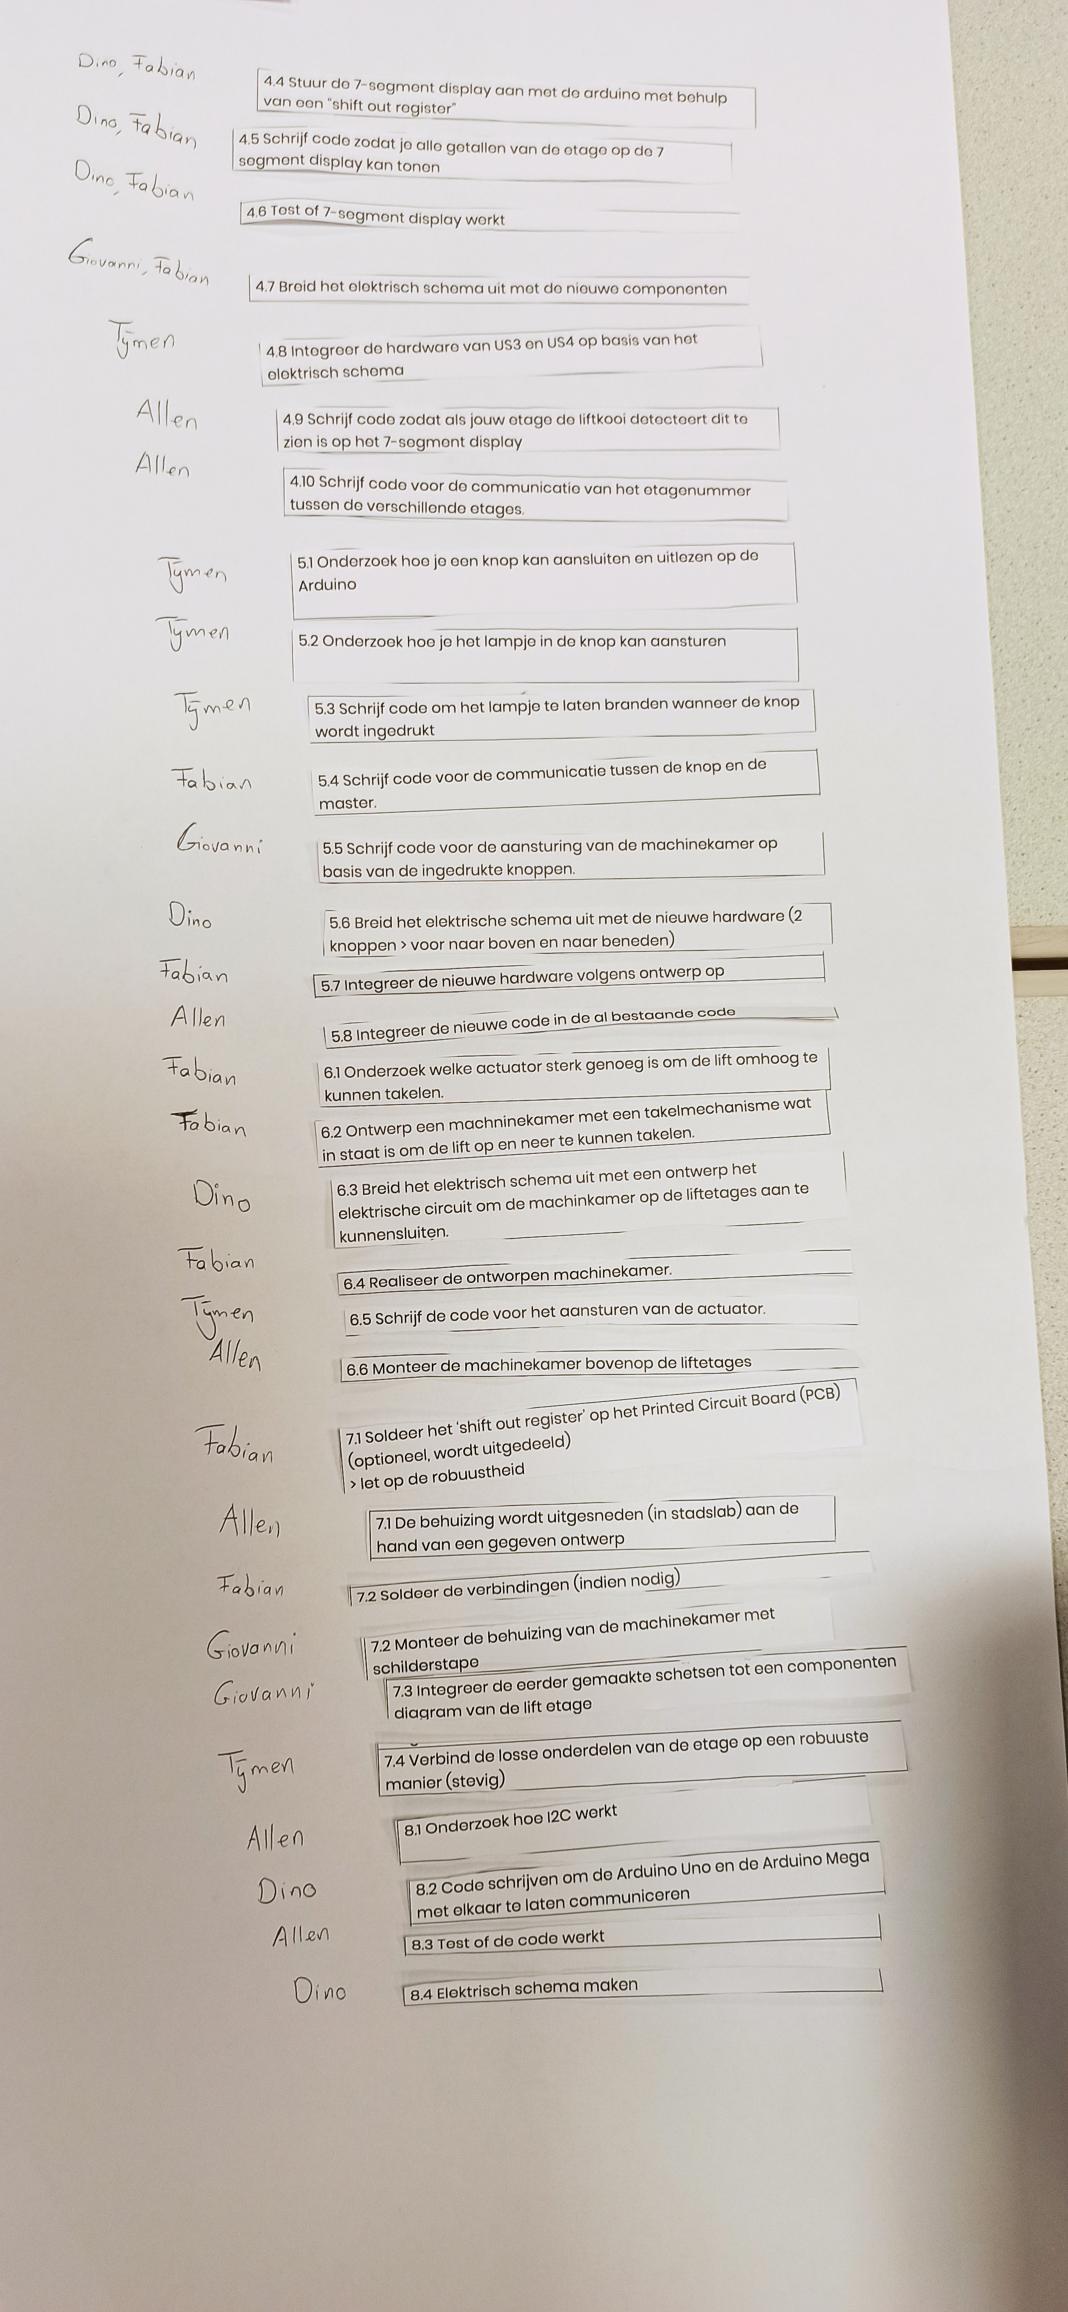 Dino, Fabian
4.4 Stuur de 7-segment display aan met de arduino met behulp
van een "shift out register"
Dino, Fabian
4.5 Schrijf code zodat je alle getallen van de etage op de 7
segment display kan tonen
Dino, Fabian
4.6 Test of 7-segment display werkt
Giovanni, Fabian
4.7 Breid het elektrisch schema uit met de nieuwe componenten
Tijmen
4.8 Integreer de hardware van US3 en US4 op basis van het
elektrisch schema
Allen
4.9 Schrijf code zodat als jouw etage de liftkooi detecteert dit te
zien is op het 7-segment display
Allen
4.10 Schrijf code voor de communicatie van het etagenummer
tussen de verschillende etages.
Tijmen
5.1 Onderzoek hoe je een knop kan aansluiten en uitlezen op de
Arduino
Tijmen
5.2 Onderzoek hoe je het lampje in de knop kan aansturen
Tijmen
5.3 Schrijf code om het lampje te laten branden wanneer de knop
wordt ingedrukt
Fabian
5.4 Schrijf code voor de communicatie tussen de knop en de
master.
Giovanni
5.5 Schrijf code voor de aansturing van de machinekamer op
basis van de ingedrukte knoppen.
Dino
5.6 Breid het elektrische schema uit met de nieuwe hardware (2
knoppen > voor naar boven en naar beneden)
Fabian
5.7 Integreer de nieuwe hardware volgens ontwerp op
Allen
5.8 Integreer de nieuwe code in de al bestaande code
Fabian
6.1 Onderzoek welke actuator sterk genoeg is om de lift omhoog te
kunnen takelen.
Fabian
6.2 Ontwerp een machninekamer met een takelmechanisme wat
in staat is om de lift op en neer te kunnen takelen.
Dino
6.3 Breid het elektrisch schema uit met een ontwerp het
elektrische circuit om de machinkamer op de liftetages aan te
kunnensluiten.
Fabian
6.4 Realiseer de ontworpen machinekamer.
Tijmen
6.5 Schrijf de code voor het aansturen van de actuator.
Allen
6.6 Monteer de machinekamer bovenop de liftetages
Fabian
7.1 Soldeer het 'shift out register' op het Printed Circuit Board (PCB)
(optioneel, wordt uitgedeeld)
> let op de robuustheid
Allen
7.1 De behuizing wordt uitgesneden (in stadslab) aan de
hand van een gegeven ontwerp
Fabian
7.2 Soldeer de verbindingen (indien nodig)
Giovanni
7.2 Monteer de behuizing van de machinekamer met
schilderstape
Giovanni
7.3 Integreer de eerder gemaakte schetsen tot een componenten
diagram van de lift etage
Tijmen
7.4 Verbind de losse onderdelen van de etage op een robuuste
manier (stevig)
Allen
8.1 Onderzoek hoe I2C werkt
Dino
8.2 Code schrijven om de Arduino Uno en de Arduino Mega
met elkaar te laten communiceren
Allen
8.3 Test of de code werkt
Dino
8.4 Elektrisch schema maken